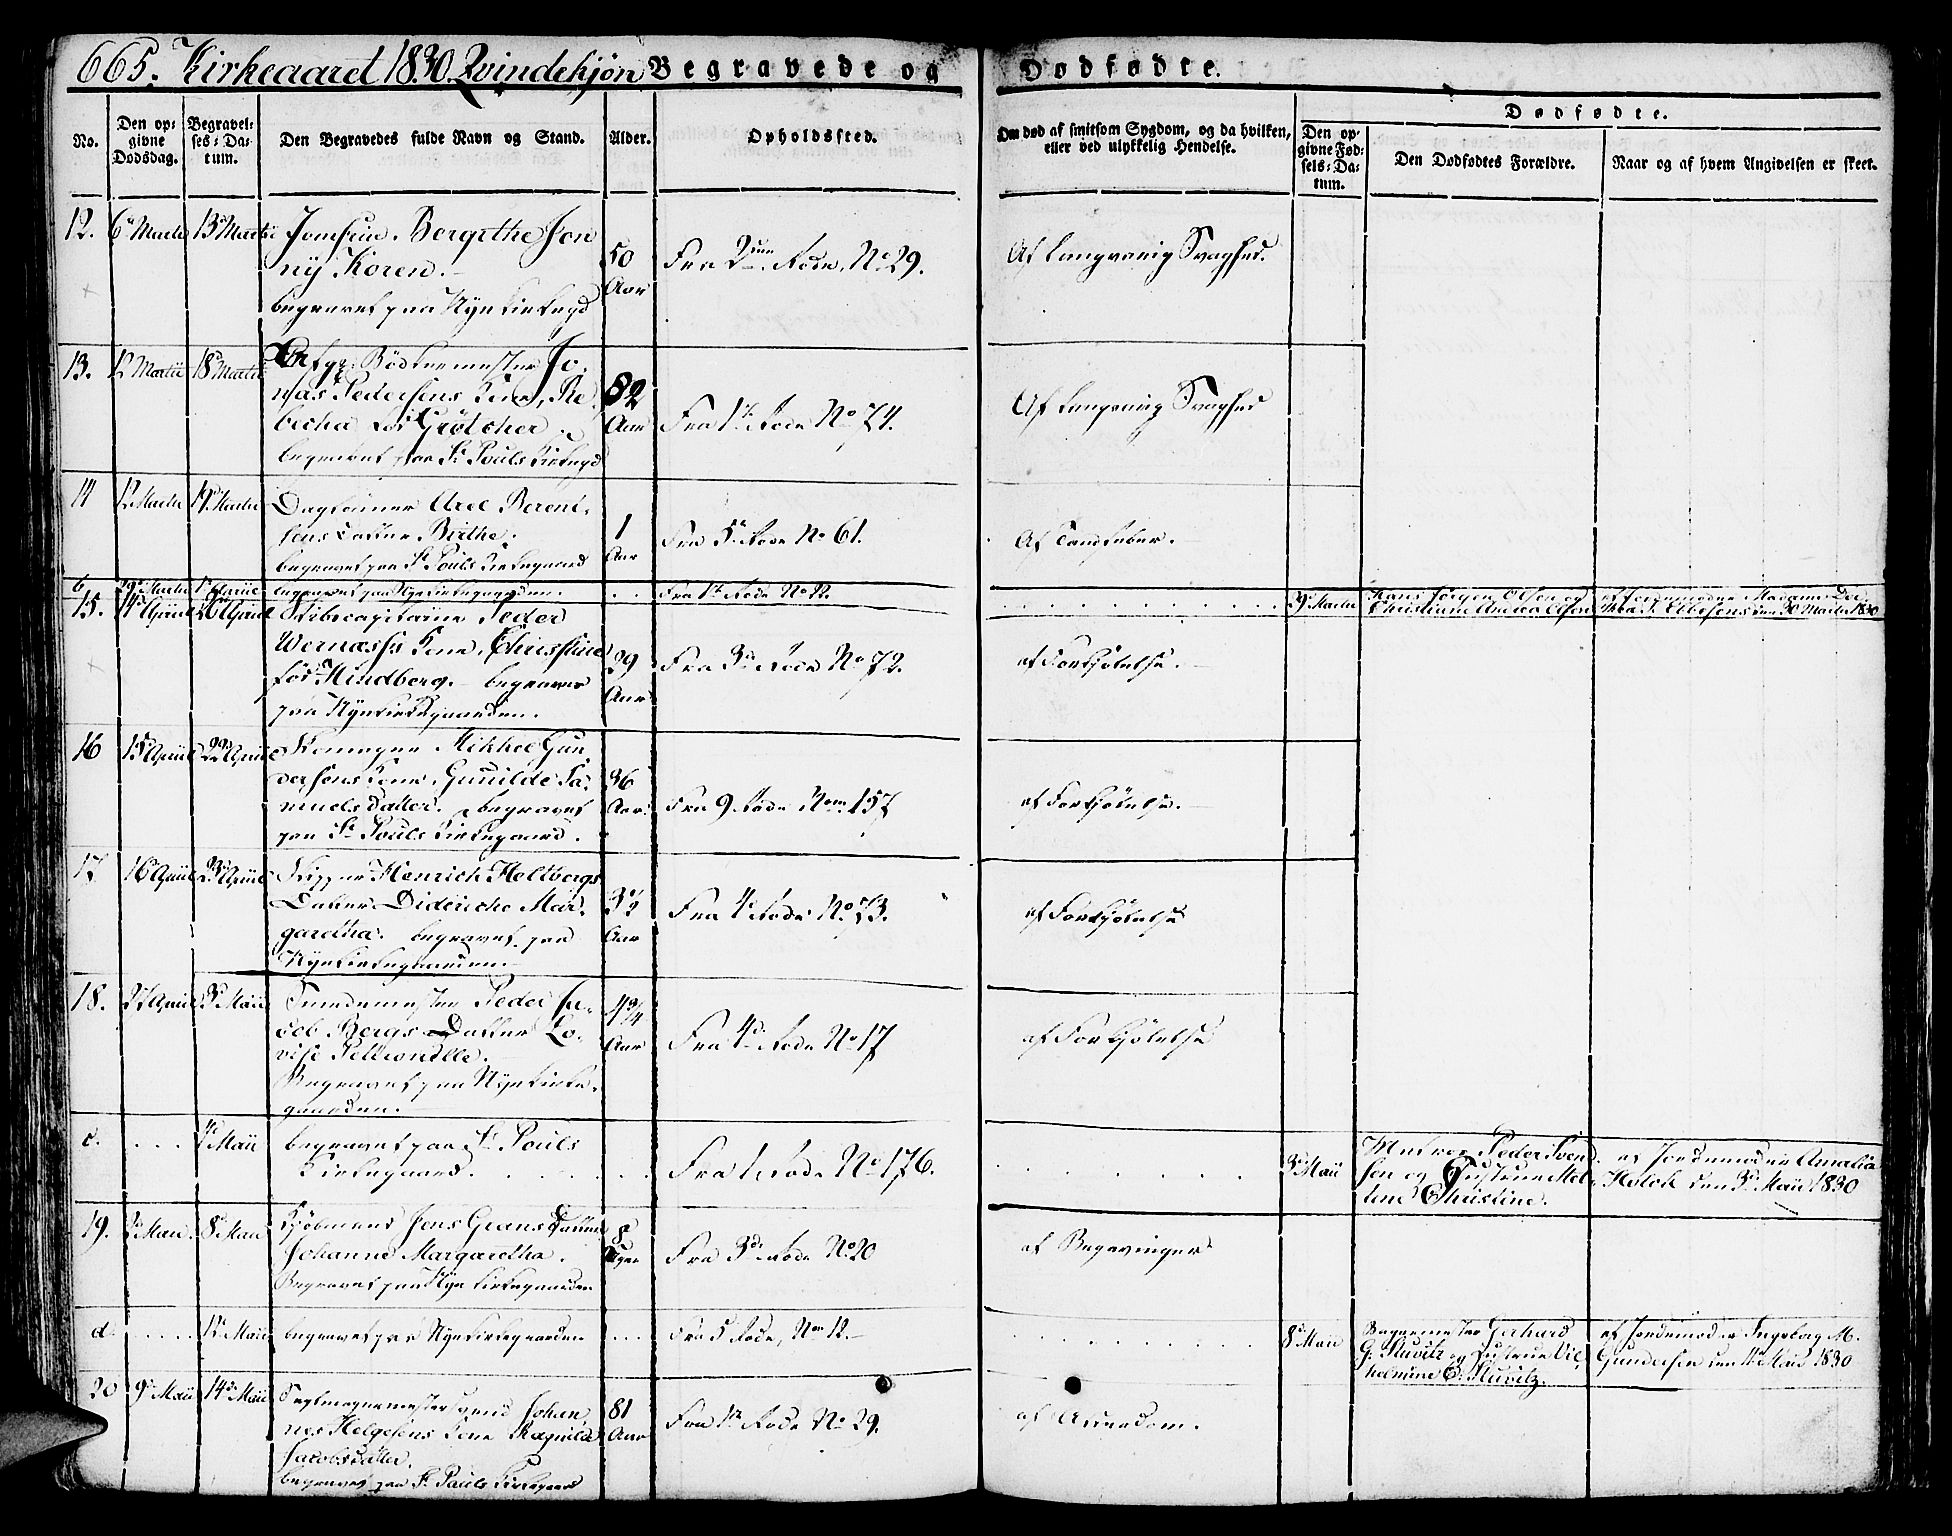 665. Kirkeaaret 1830. Qvindekjøn Begravede og Dødfødte.
No.
Den op-
givne
Dødsdag.
Begravel-
ses-Da-
tum.
Den Begravedes fulde Navn og Stand.
Alder.
Opholdssted.
Om død af smitsom Sygdom, og da hvilken,
eller ved ulykkelig Hendelse.
Dødfødte.
Den op-
givne Fød-
sels-Da-
tum.
Den Dødfødtes Forældre.
Naar og af hvem Angivelsen er skeet.
12. 6 Martii 13 Martii
Jomfrue Bergithe Jen
ny Koren.
begravet paa Nye Kirkegd
50
Aar
Fra 2den Rode, No 29.
Af langvarig Svaghed.
13. 12 Martii 18 Martii
Bødkermester Jo-
nas Pedersens Kone, Re-
becha født Grøtcher.
begravet paa St Pouls Kirkegd
82
Aar
Fra 1te Rode No 74.
Af langvarig Svaghed
14 12 Martii 19 Martii
Dagleiner Axel Berent-
sens Datter Birthe.
begravet paa St Pouls Kirkegaard
1
Aar
Fra 5 Rode No 61.
Af Tandfeber.
b 29 Martii 1 Aprill
begravet paa Nye Kirkegaarden.
Fra 1te Rode No 22.
29 Martii
Hans Jørgen Olsen og
Christiane Andrea Olsen
af Jordemoder Madame
Ellefsens den 30 Martii 1830
15. 14 Aprill 20 Aprill
Skibscapitaine Peder
Wernæss's Kone, Christine
født Mindberg. begravet
paa Nye Kirkegaarden.
29
Aar
Fra 3de Rode No 72.
af Forkjølelse.
16 15 Aprill 22 Aprill
Mikkel Gun
dersens Kone, Gunilde Sa-
muelsdatter. begravet
paa St Pouls Kirkegaard.
36
Aar
Fra 9 Rode Nom 157
af Forkjølelse.
17 16 Aprill 23 Aprill
Skipper Henrich Holtbergs
Datter Dideriche Mar-
garetha. begravet paa
Nye Kirkegaarden.
3½
Aar
Fra 4 Rode No 73.
af Forkjølelse
18. 27 Aprill 3 Maii
Smedemester Peder Ja-
cob Bergs Datter Lo-
vise Petronelle.
Begravet paa Nye Kirke-
gaarden.
4¾
Aar
Fra 4de Rode No 17
af Forkjølelse
c. 7 Maii
begravet paa St Pouls
Kirkegaard.
Fra 1 Rode No 176.
3 Maii
Matros Peder Svend-
sen og Hustrue Mal-
tine Christine.
af Jordemoder Amalia
Holck den 3 Maii 1830
19. 2 Maii 8 Maii
Kjøbmand Jens Grans Datter
Johanne Margaretha.
Begravet paa Nye Kirkegaarden
8
Uger
Fra 3de Rode No 20
af Begavinger
d. 12 Maii
begravet paa Nye Kirkegaarden
Fra 5 Rode, Nom 12.
8 Maii
Bagermester Gerhard
G. Stuvitz og Hustrue Vil-
helmine E. Stuvitz.
af Jordemoder Ingeborg M.
Gundersen den 11 Maii 1830
20 9 Maii 14 Maii
Svend Johan
nes Helgesens Kone Ragnilde
Jacobsdatter.
begravet paa St Pouls Kirkegaard
81
Aar
Fra 1te Rode No 29.
af Alderdom.